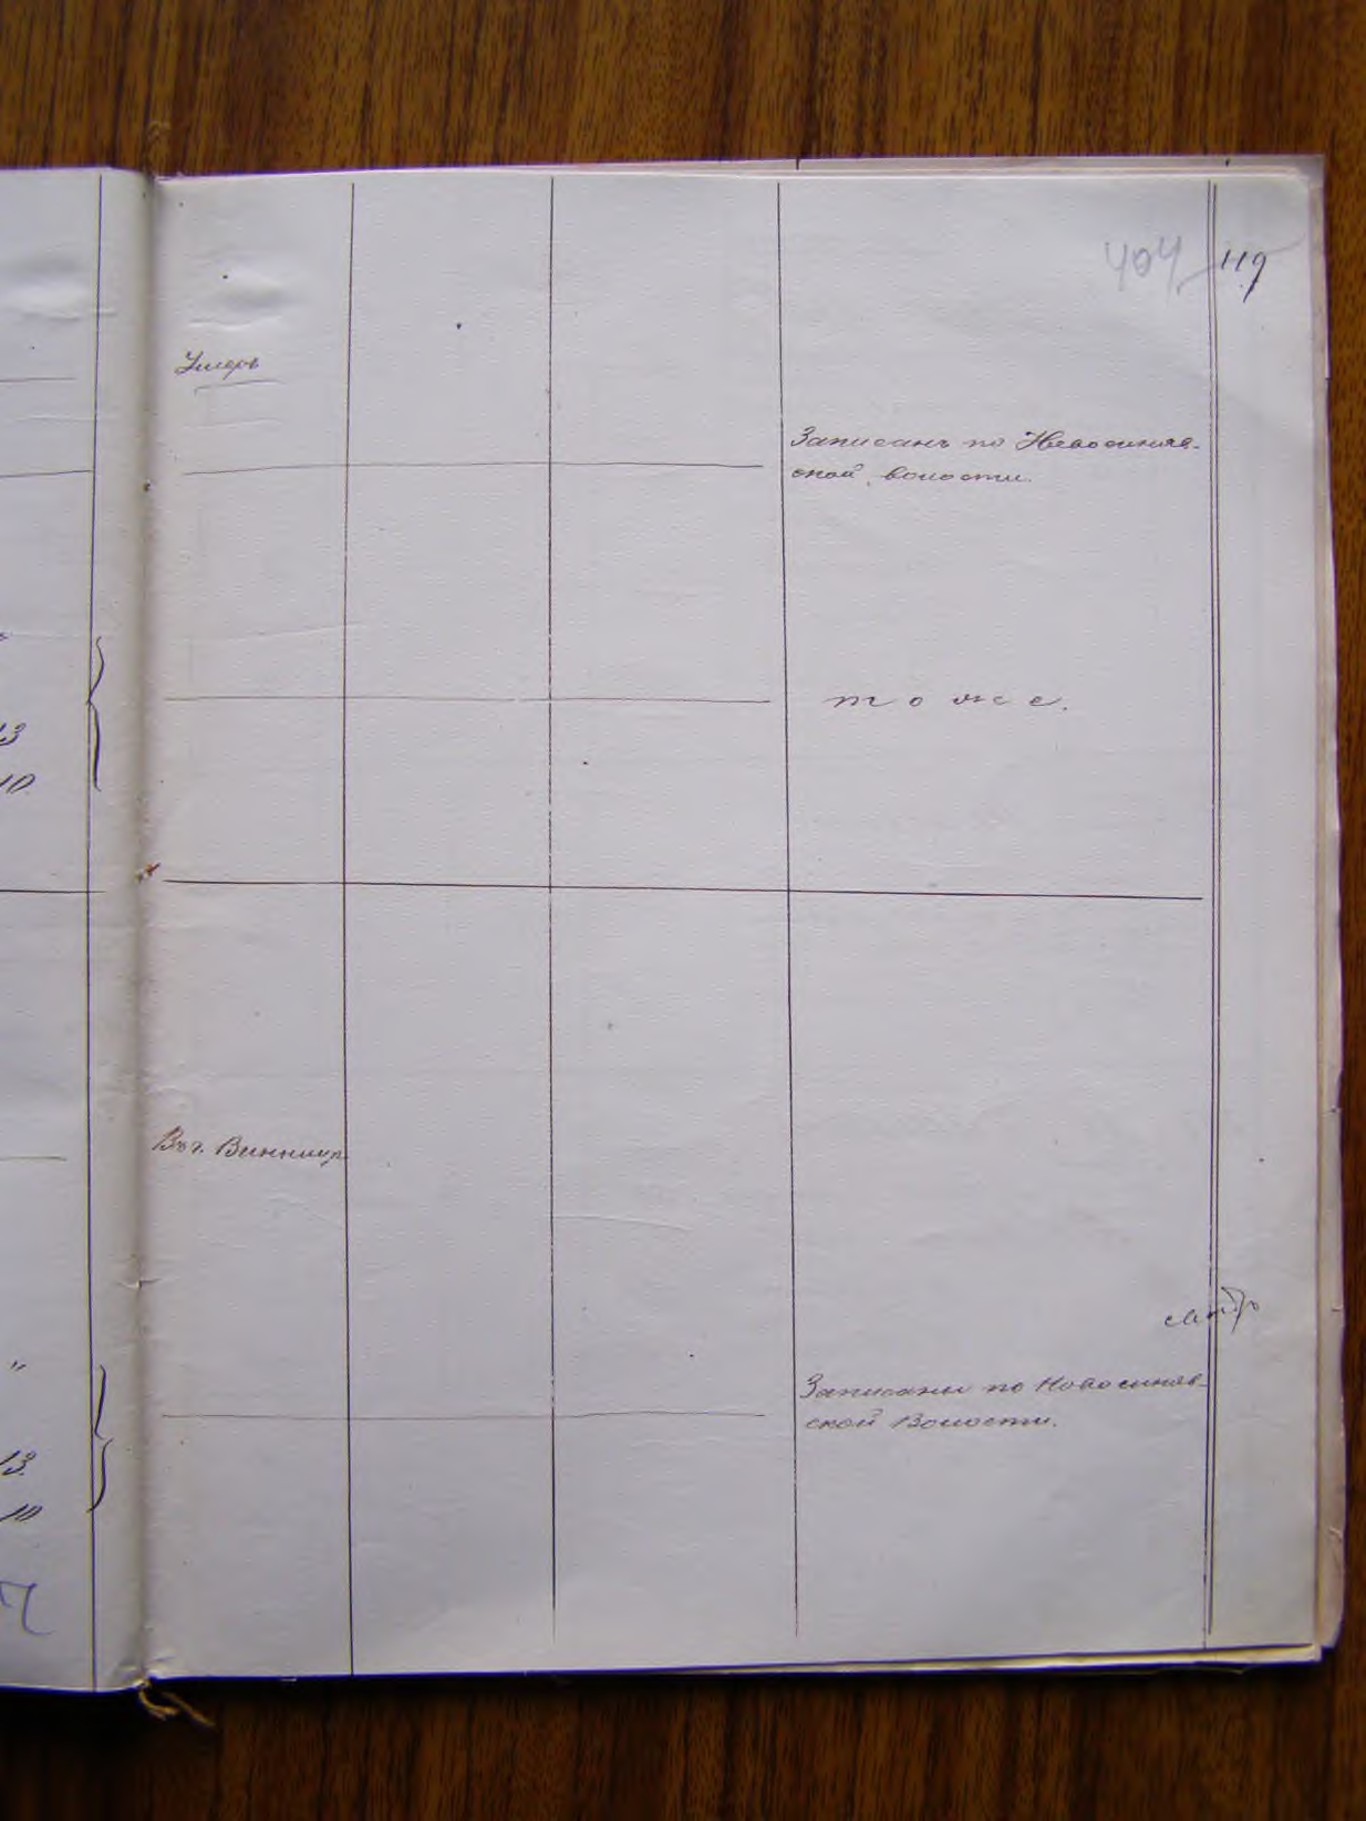 404 119
Умеръ
Записанъ по Новосиняв-
ской волости.
тоже.
13
10
Въ г. Винницѣ
Записаны по Новосиняв-
ской Волости.
"
13
10